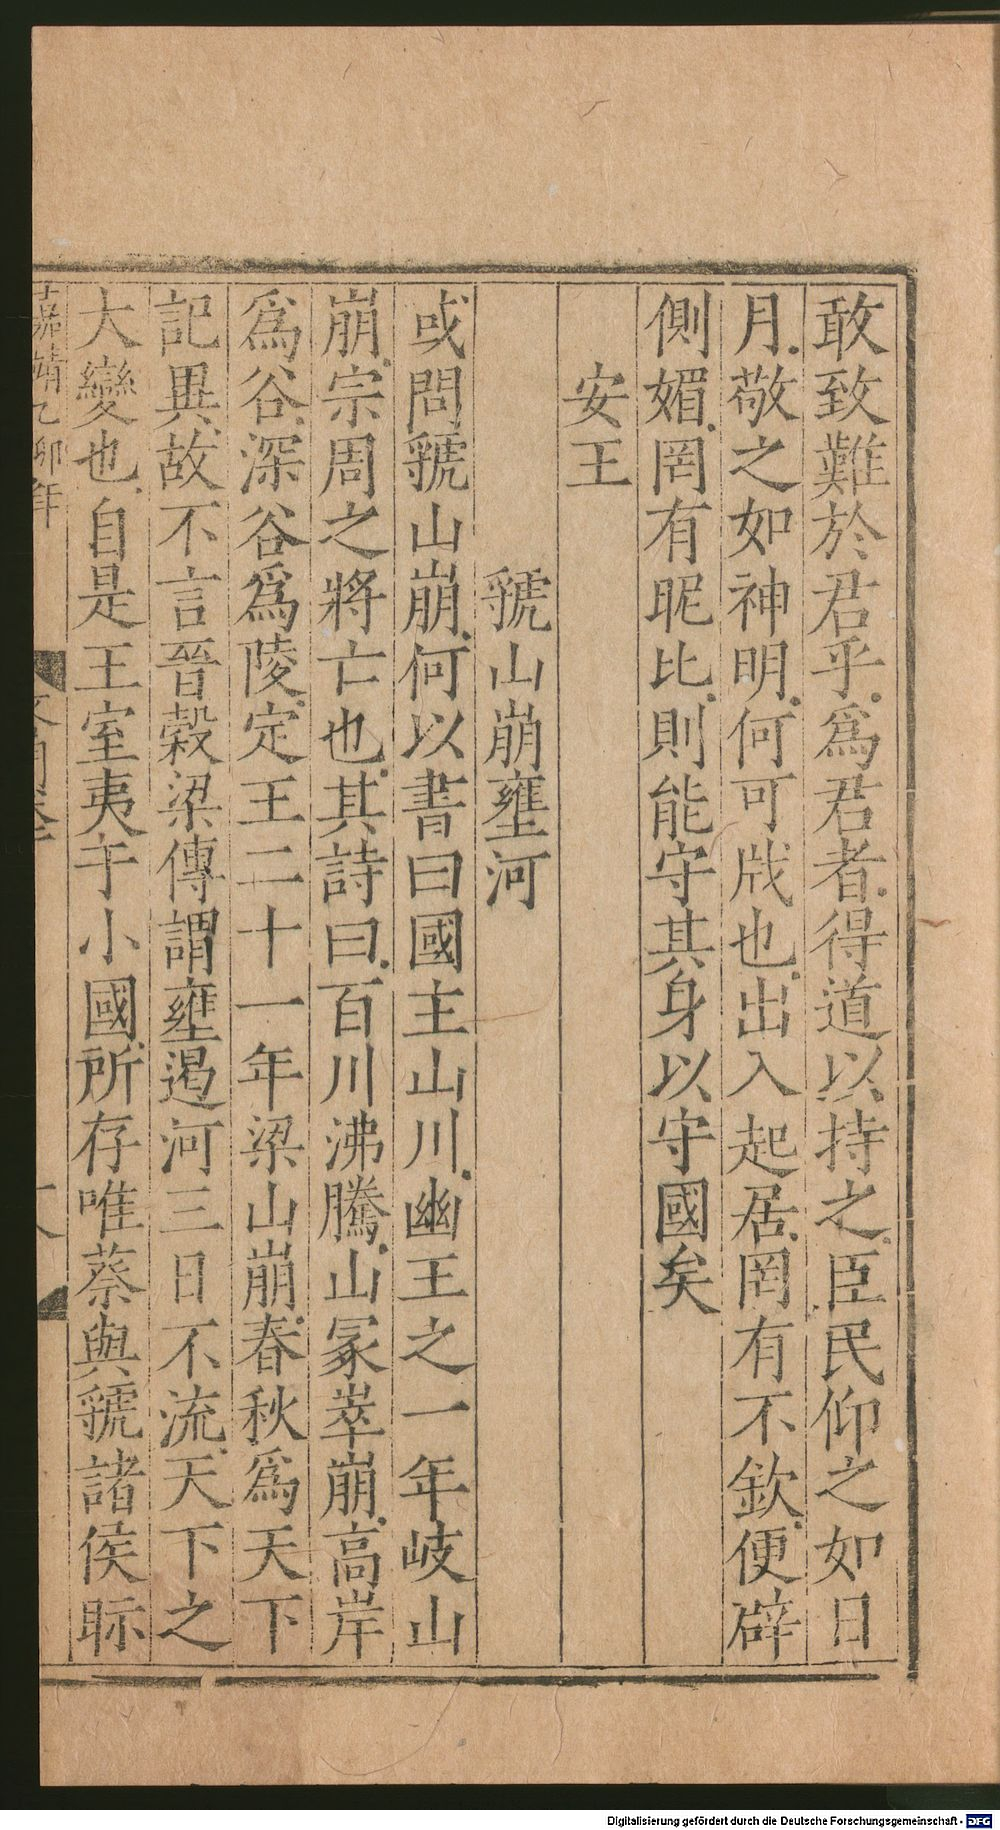 敢致難於君乎爲君者得道以持之臣民仰之如日
月敬之如神明何可戕也出入起居罔有不欽便辟
側媚罔有昵比則能守其身以守國矣
安王
虢山崩壅河
或問虢山崩何以書曰國主山川幽王之一年岐山
崩宗周之將亡也其詩曰百川沸騰山冢崒崩高岸
爲谷深谷爲陵定王二十一年梁山崩春秋爲天下
記異故不言晉穀梁傳謂壅遏河三日不流天下之
大變也自是王室夷于小國所存唯蔡與虢諸侯眎
嘉靖乙卯年
Digitalisierung gefördert durch die Deutsche Forschungsgemeinschaft - DFG